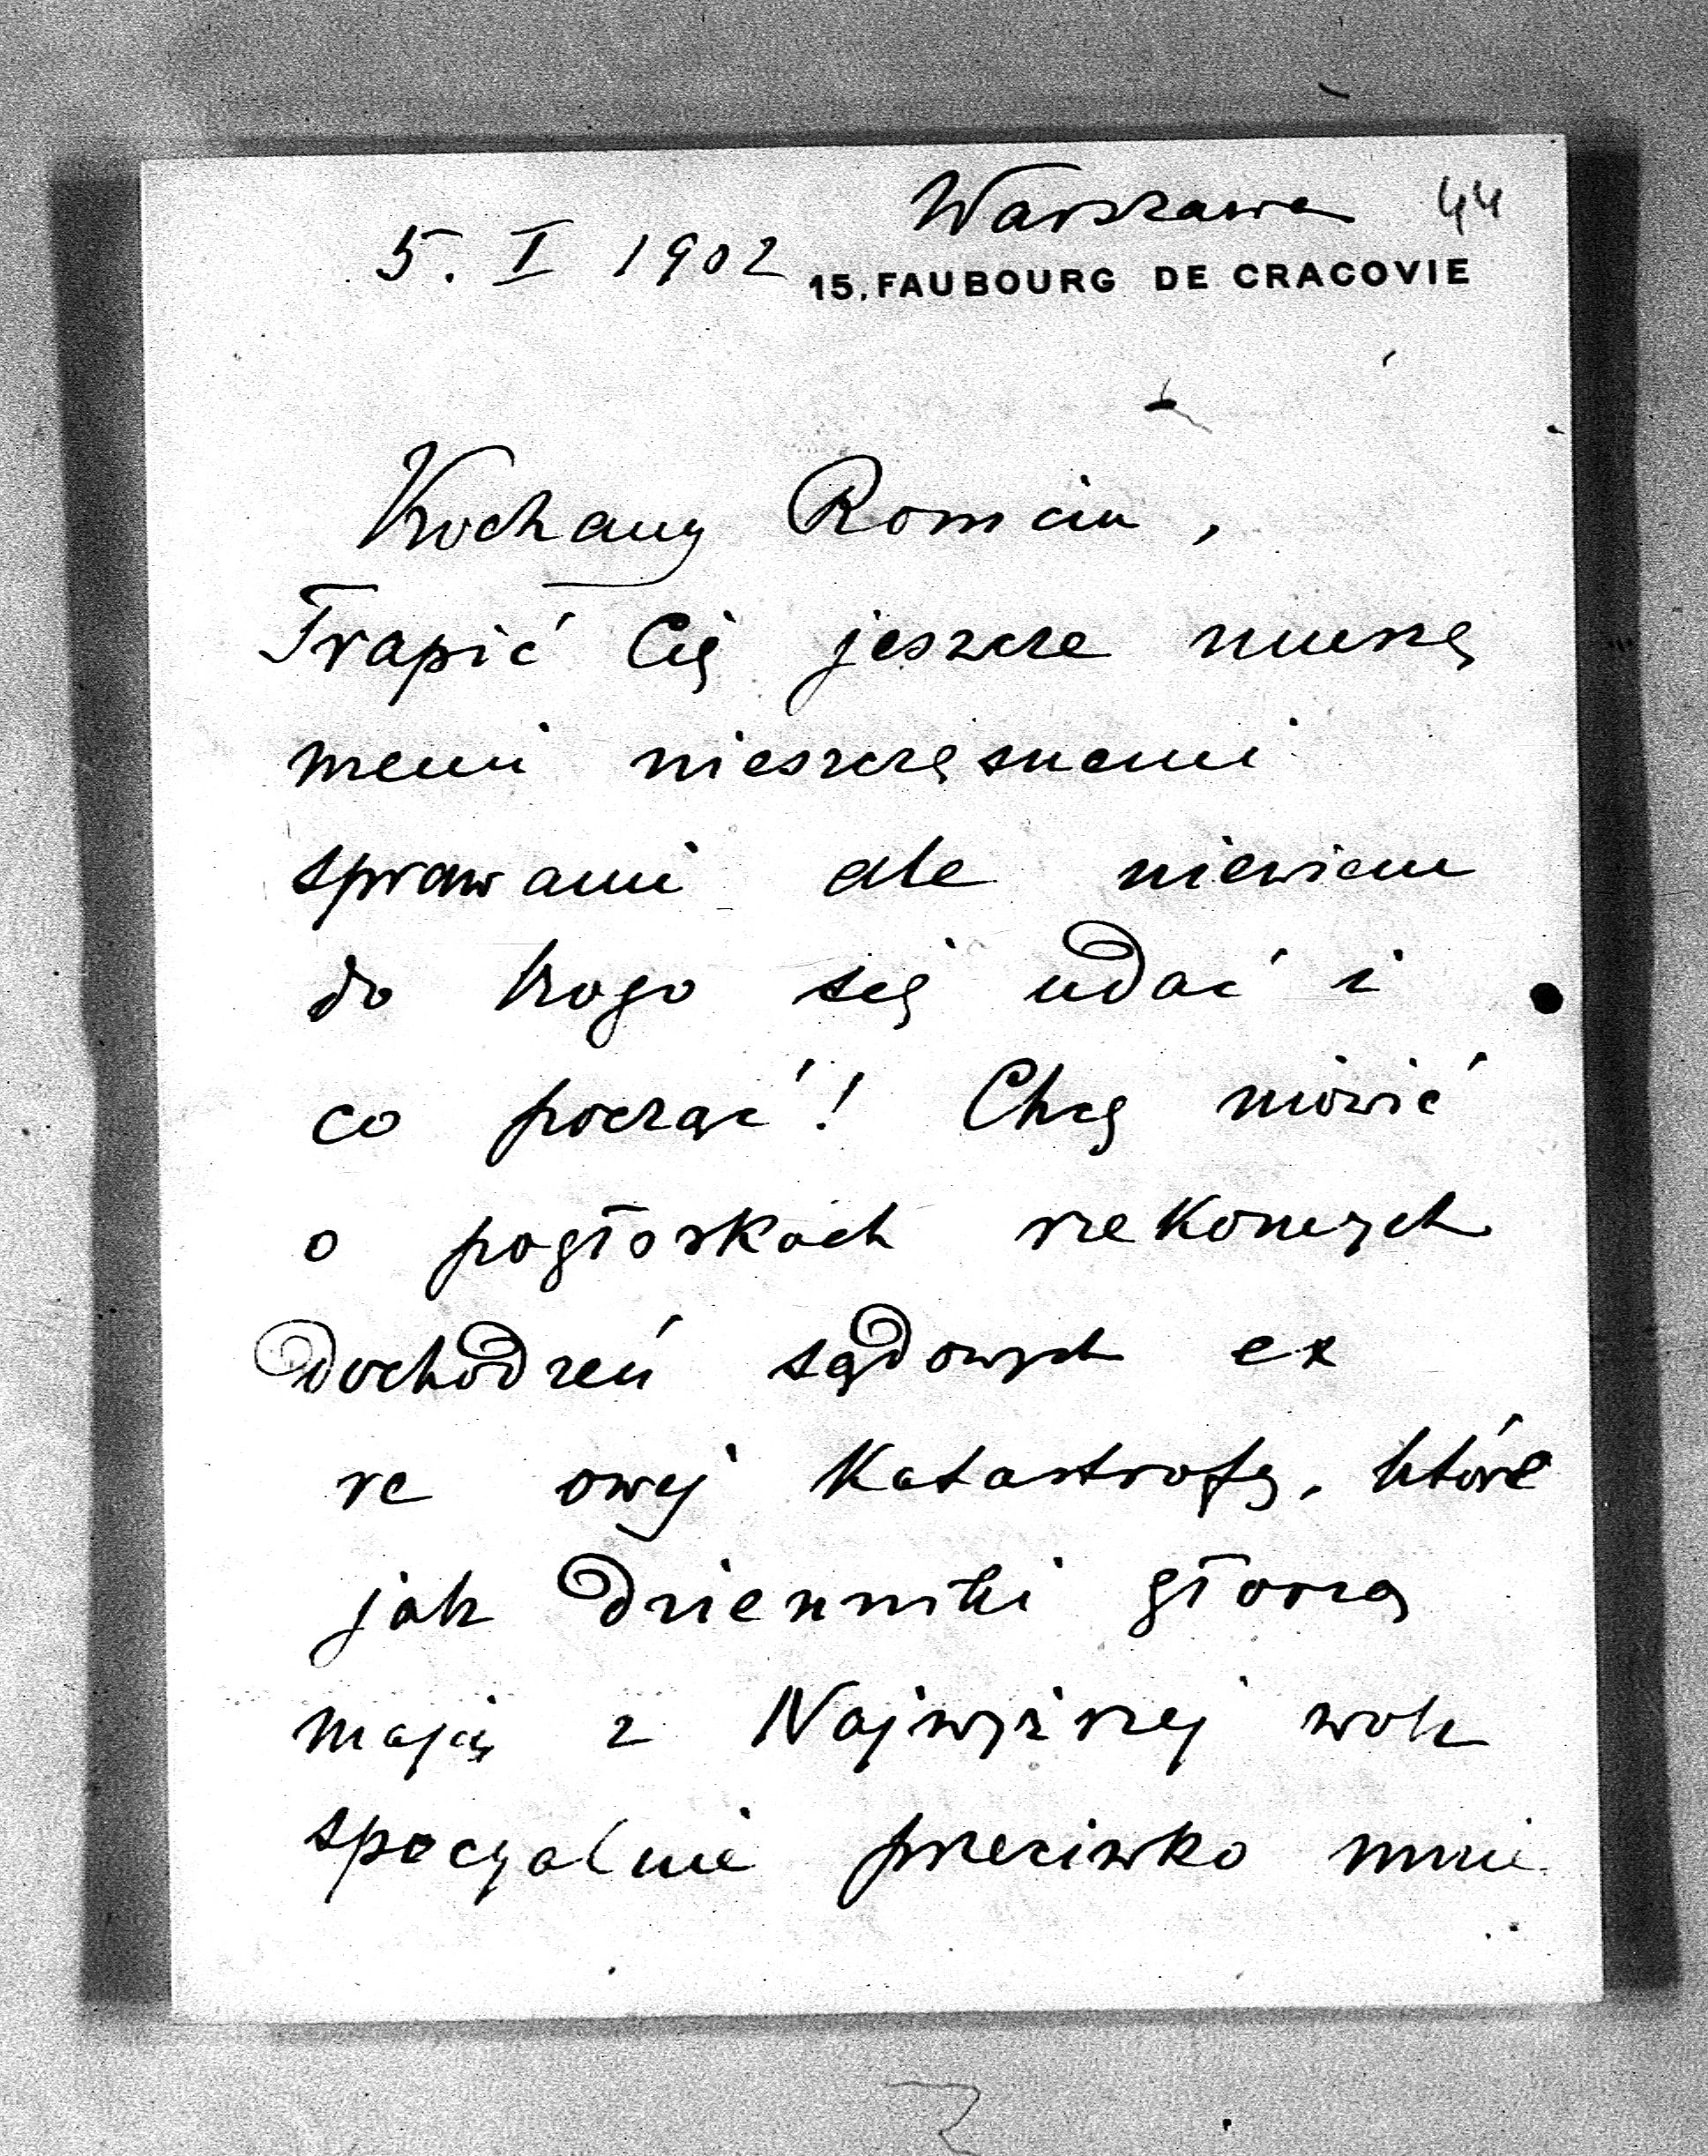 Warszawa 44
5. I 1902
15, FAUBOURG DE CRACOVIE
Kochany Romciu,
Trapić Cię jeszcze muszę
memi nieszczęsnemi
sprawami ale niewiem
do kogo się udać i
co począć! Chcę mówić
o pogłoskach rzekomych
dochodzeń sądowych ex
re owej Katastrofy, które
jak dzienniki głoszą
mają z Najwyższej woli
specyalnie przeciwko mnie